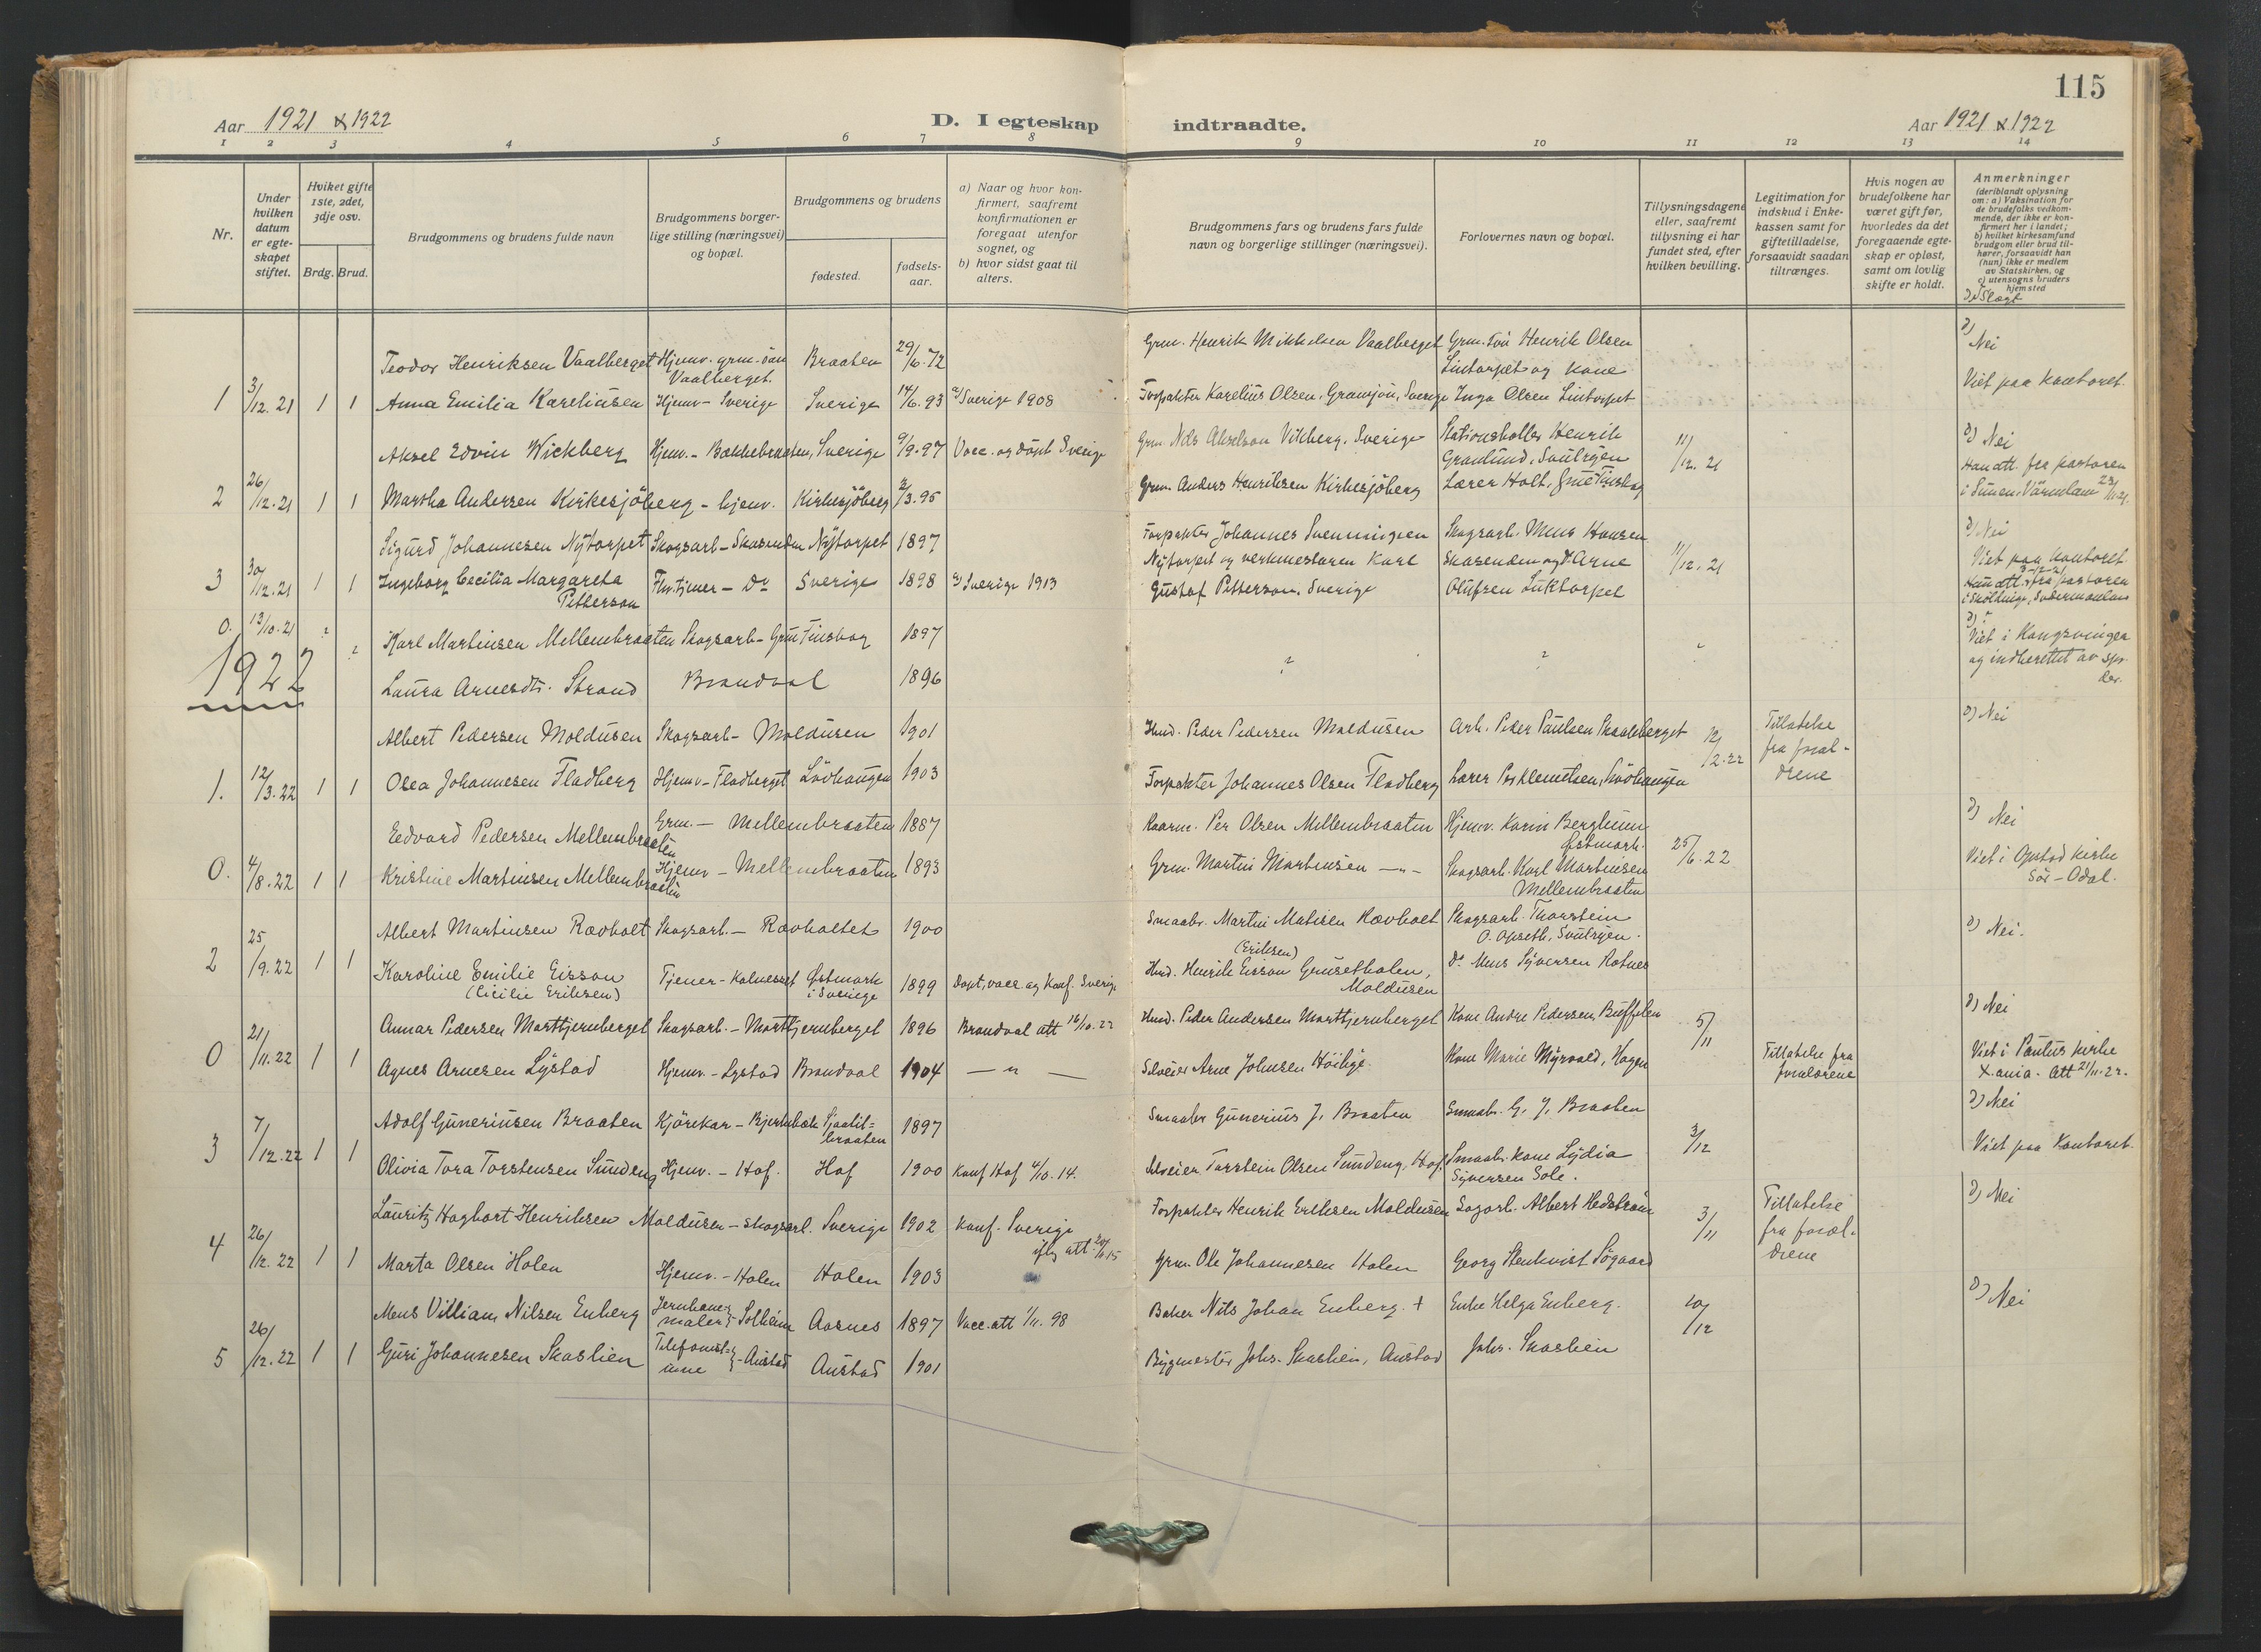 115
Aar 1921 & 1922
D. I egteskap indtraadte.
Aar 1921 & 1922
1 2 3 4 5 6 7 8 9 10 11 12 13 14
Nr.
Under hvilken datum er egteskapet stiftet.
Hviket gifte 1ste, 2det, 3dje osv.
Brdg. Brud.
Brudgommens og brudens fulde navn
Brudgommens borgerlige stilling (næringsvei) og bopæl.
Brudgommens og brudens
fødested.
fødselsaar.
a) Naar og hvor konfirmert, saafremt konfirmationen er foregaat utenfor sognet, og
b) hvor sidst gaat til alters.
Brudgommens fars og brudens fars fulde navn og borgerlige stillinger (næringsvei).
Forlovernes navn og bopæl.
Tillysningsdagene eller, saafremt tillysning ei har fundet sted, efter hvilken bevilling.
Legitimation for indskud i Enkekassen samt for giftetilladelse, forsaavidt saadan tiltrænges.
Hvis nogen av brudefolkene har været gift før, hvorledes da det foregaaende egteskap er opløst, samt om lovlig skifte er holdt.
Anmerkninger (deriblandt oplysning om: a) Vaksination for de brudefolks vedkommende, der ikke er konfirmert her i landet; b) hvilket kirkesamfund brudgom eller brud tilhører, forsaavidt han (hun) ikke er medlem av Statskirken, og c) utensogns bruders hjemsted
d) Slegt
Teodor Henriksen Vaalberget Hjemv. grm. søn Vaalberget. Braaten 29/6.72 Grm. Henrik Mikkelsen Vaalberget Grm. Henrik Olsen Lintorpet og kone d) Nei
1 3/12.21 1 1 Anna Emilia Kareliusen Hjemv - Sverige Sverige 14/6.93 a) Sverige 1908 Forpakter Karelius Olsen, Gransjøn, Sverige Inga Olsen Lintorpet Viet paa kontoret.
Aksel Edvin Wickberg Hjemv. - Bækkebraaten, Sverige 9/9.97 Vacc. og døpt Sverige Grm. Nils Akselson Vikberg, Sverige Stationsholder Henrik Granlund, Svulryen 11/12.21 d) Nei
2 26/12.21 1 1 Martha Andersen Kirkesjøberg - hjemv. Kirkesjøberg 2/3.95 Grm. Anders Henriksen Kirkesjøberg Lærer Holt, Grue Finskog Han att. fra pastoren i Sunne, Värmland
Sigurd Johannesen Nytorpet Skogsarb - Skasenden Nytorpet 1897 Forpakter Johannes Svenningsen Nytorpet og verkmestaren Karl Gustaf Petterson, Sverige Skogsarb. Mens Hansen Skasenden og Do Arne Olufsen Luktorpet 11/12.21 d) Nei
3 30/12.21 1 1 Ingeborg Cecilia Margareta Petterson Do Sverige 1898 a) Sverige 1913 Viet paa kontoret. Hun att. fra pastoren
0. 13/10.21 ? ? Karl Martinsen Mellembraaten Skogsarb - Grue Finskog 1897 ? ? ? d) ? Viet i Kongsvinger og indberettet av spr. der.
1922
Laura Arnesdtr. Strand Brandval 1896
Albert Pedersen Moldusen Skogsarb - Moldusen 1901 Husd. Peder Pedersen Moldusen Arb. Peder Paulsen 12/2.22 Tillatelse fra forældrene d) Nei
1. 12/3.22 1 1 Olea Johannesen Fladberg Hjemv - Fladberget Lövhaugen 1903 Forpakter Johannes Olsen Fladberg Lærer Klemetsen, Lövhaugen
Edvard Pedersen Mellembraaten Grm. - Mellembraaten 1887 Per Olsen Mellembraaten Hjemv. Karin Bergheim Østmark. 25/6.22 d) Nei
0. 4/8.22 1 1 Kristine Martinsen Mellembraaten Hjemv - Mellembraaten 1893 Grm. Martin Martinsen - " - Skogsarb. Karl Martinsen Mellembraaten Viet i Opstad kirke Sør-Odal.
Albert Martinsen Rævholt Skogsarb. - Rævholtet 1900 Smaabr. Martin Matisen Rævholt Skogsarb. Thorstein O. Opseth, Svulryen. d) Nei.
2 25/9.22 1 1 Karoline Emilie Eisson (Cicilie Eriksen) Tjener - Kalneset Østmark i Sverige 1899 Døpt, vacc. og konf. Sverige Husd. Henrik Eisson (Eriksen) Moldusen Do Mens Syversen Rotnes
Annar Pedersen Morttjernberget Skogsarb. - Morttjernberget 1896 Brandval att 16/10.22 Husd. Peder Andersen Morttjernberget Kone Andre Pedersen Buffelen 5/11 d) Nei
0 21/11.22 1 1 Agnes Arnesen Lystad Hjemv. - Lystad Brandval 1904 - " - Selveier Arne Johnsen Kone Marie Myrvold, Hagen Tillatelse fra forældrene Viet i Paulus kirke X.ania. Att 21/11.22.
Adolf Gunerinsen Braaten Kjörekar - 1897 Smaabr Gunerius J. Braaten Smaabr. G. J. Braaten 3/12 d) Nei
3 7/12.22 1 1 Olivia Tora Torstensen Sundeng Hjemv. - Hof. Hof 1900 Konf Hof 4/10.14. Selveier Torstein Olsen Sundeng, Hof. Smaabr. kone Lydia Syversen Sole. Viet paa Kontoret.
Lauritz Hagbart Henriksen Moldusen - skogsarb. Sverige 1902 Konf. Sverige iflg att. Forpakter Henrik Eriksen Moldusen Sagarb. Albert Hedström 3/11 Tillatelse fra forældrene d) Nei
4 26/12.22 1 1 Marta Olsen Holen Hjemv. - Holen Holen 1903 Grm. Ole Johannesen Holen Georg Stenkvist Sögaard
Mens Villiam Nilsen Enberg Jernbanemaler - Solheim Aasnes 1897 Vacc. att 1/11.98 Baker Nils Johan Enberg. + Enke Helga Enberg. 10/12 d) Nei
5 26/12.22 1 1 Guri Johannesen Skaslien Telefonistinne - Austad Austad 1901 Bygmester Johs. Skaslien, Austad Johs. Skaslien